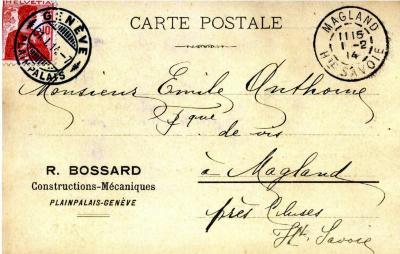 CARTE POSTALE
HELVETIA
10
GENÈVE
PLAINPALAIS
MAGLAND
11 15
1 -2
14
HTE SAVOIE
Monsieur Emile Anthoine
Fque
de vis
à Magland
près Cluses
Hte Savoie
R. BOSSARD
Constructions-Mécaniques
PLAINPALAIS-GENÈVE